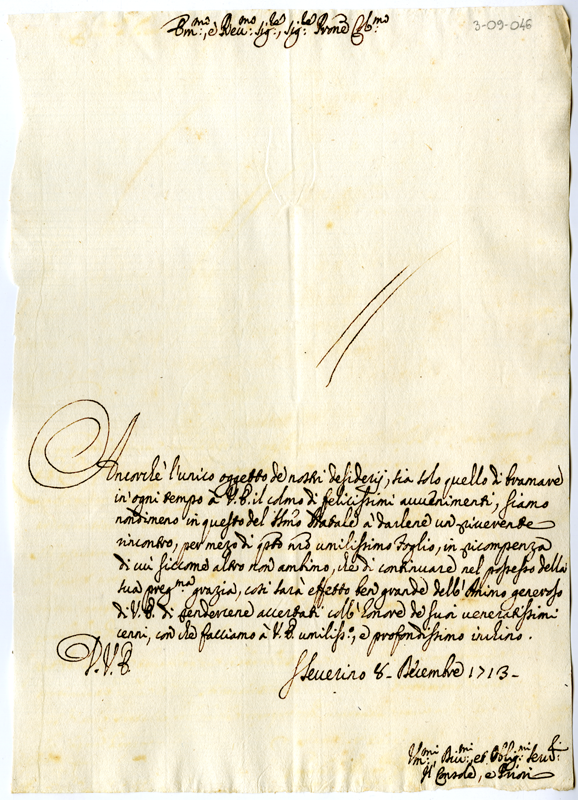 Em:mo, è Reu:mo Sig:re, Sig:re Prone Col:mo
3-09-046
Ancorche l'unico oggetto de nostri desiderij, sia solo quello di bramare
in ogni tempo à V.E. il colmo di felicissimi auuenimenti, siamo
nondimeno in questo del SSmo Natale à darlene un riuerente
rincontro, per mezo di questo nro umilissimo foglio, in ricompenza
di cui siccome altro non ambimo, che di continuare nel possesso della
sua preg:ma grazia, così sarà effetto ben grande dell'Animo generoso
di V.E. di rendercene accertati coll'honore de suoi veneratissimi
cenni, con che facciamo à V.E. umiliss:o, e profondissimo inchino.
D.V.E.
SSeuerino 8- Décembre 1713-
Um:mi, Deu:mi, et Oblig:mi Seru:ri
Il Console, e Priori